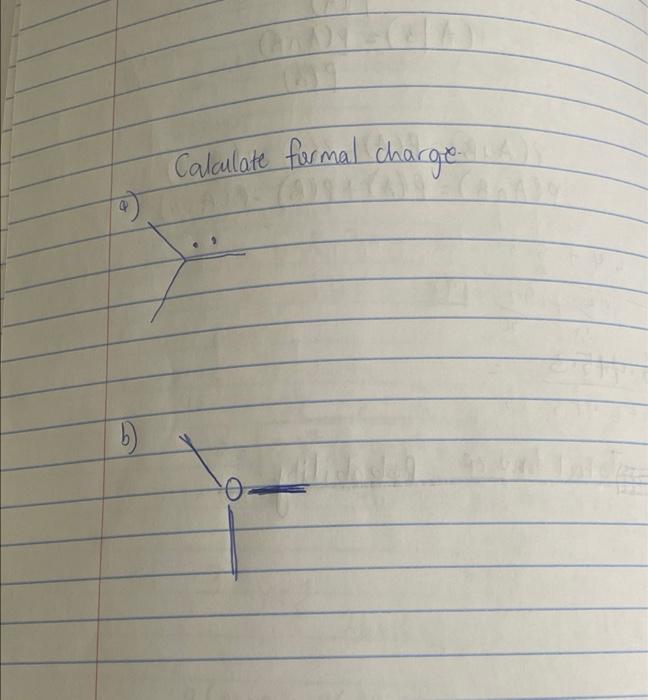 Calculate formal charge.
a)
b)
O